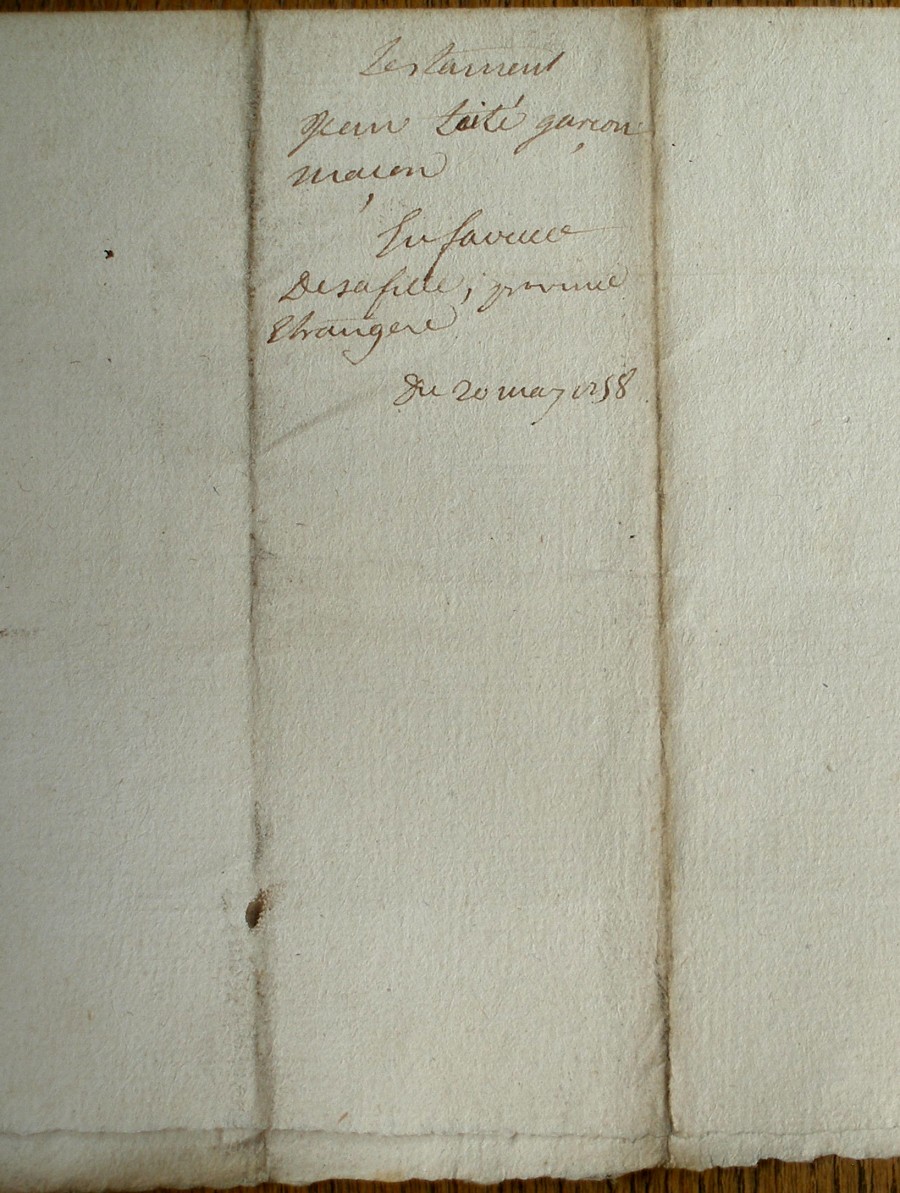 testament
Jean Laité garçon
maçon
En faveur
De sa fille, province
Etrangere
Du 20 may 1758